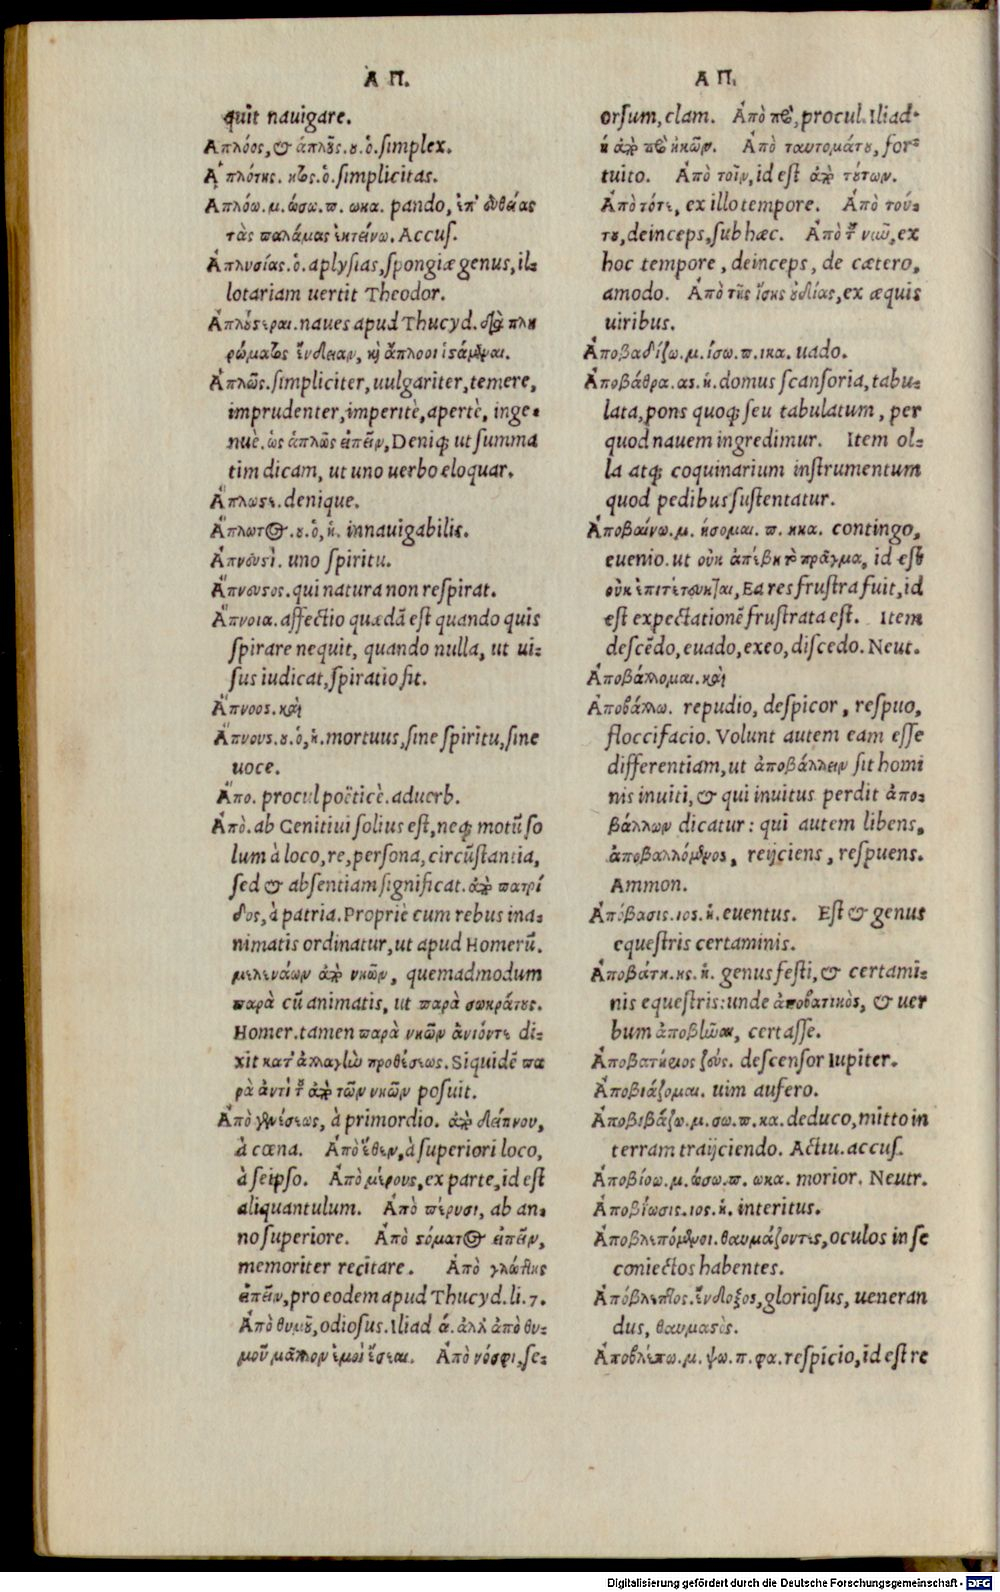 Α Π.
quit nauigare.
Ἁπλόος, & ἁπλοῦς. ου. ὁ. simplex.
Ἁπλότης. ητος. ἡ. simplicitas.
Ἁπλόω. μ. ώσω. π. ωκα. pando, ἐπ' εὐθείας
τὰς παλάμας ἐκτείνω. Accus.
Ἀπλυσίας. ὁ. aplysias, spongiæ genus, il-
lotariam uertit Theodor.
naues apud Thucyd. διὰ πλη
ρώματος ἔνδειαν, καὶ ἄπλοοι
Ἁπλῶς. simpliciter, uulgariter, temere,
imprudenter, imperitè, apertè, inge-
nuè. ὡς ἁπλῶς εἰπεῖν, Deniq; ut summa
tim dicam, ut uno uerbo eloquar.
Ἅπλωστι. denique.
Ἄπλωτος. ου. ὁ, ἡ. innauigabilis.
Ἀπνευστὶ. uno spiritu.
Ἄπνευστος. qui natura non respirat.
Ἄπνοια. affectio quædã est quando quis
spirare nequit, quando nulla, ut ui-
sus iudicat, spiratio fit.
Ἄπνοος. καὶ
Ἄπνους. ου. ὁ, ἡ. mortuus, sine spiritu, sine
uoce.
Ἄπο. procul poëticè. aduerb.
Ἀπὸ. ab Genitiui solius est, neq; motũ so
lum à loco, re, persona, circũstantia,
sed & absentiam significat. ἀπὸ πατρί
δος, à patria. Propriè cum rebus ina-
nimatis ordinatur, ut apud Homerũ.
μελινάων ἀπὸ νηῶν, quemadmodum
παρὰ cũ animatis, ut παρὰ σωκράτους.
Homer. tamen παρὰ νηῶν ἀνιόντι di-
xit κατ' ἀλλαγὴν προθέσεως. Siquidẽ πα
ρὰ ἀντὶ τοῦ ἀπὸ τῶν νηῶν posuit.
Ἀπὸ γενέσεως, à primordio. ἀπὸ δείπνου,
à cœna. Ἀπὸ ἕθεν, à superiori loco,
à seipso. Ἀπὸ μέρους, ex parte, id est
aliquantulum. Ἀπὸ πέρυσι, ab an-
no superiore. Ἀπὸ στόματος εἰπεῖν,
memoriter recitare. Ἀπὸ γλώττης
εἰπεῖν, pro eodem apud Thucyd. li. 7.
Ἀπὸ θυμοῦ, odiosus. Iliad ά. ἀλλ' ἀπὸ θυ-
μοῦ μᾶλλον ἐμοὶ ἔσεαι. Ἀπὸ νόσφι, se-
Α Π.
orsum, clam. Ἀπὸ πρὸ, procul. Iliad.
ή ἀπὸ πρὸ νηῶν. Ἀπὸ ταυτομάτου, for-
tuito. Ἀπὸ τοῖν, id est ἀπὸ τούτων.
Ἀπὸ τότε, ex illo tempore. Ἀπὸ τού-
του, deinceps, sub hæc. Ἀπὸ τοῦ νῦν, ex
hoc tempore, deinceps, de cætero,
amodo. Ἀπὸ τῆς ἴσης οὐσίας, ex æquis
uiribus.
Ἀποβαδίζω. μ. ίσω. π. ικα. uado.
Ἀποβάθρα. ας. ἡ. domus scansoria, tabu-
lata, pons quoq; seu tabulatum, per
quod nauem ingredimur. Item ol-
la atq; coquinarium instrumentum
quod pedibus sustentatur.
Ἀποβαίνω. μ. ήσομαι. π. ηκα. contingo,
euenio. ut οὐκ ἀπέβη τὸ πρᾶγμα, id est
οὐκ ἐπιτέτευκται, Ea res frustra fuit, id
est expectationẽ frustrata est. Item
descẽdo, euado, exeo, discedo. Neut.
Ἀποβάλλομαι. καὶ
Ἀποβάλλω. repudio, despicor, respuo,
floccifacio. Volunt autem eam esse
differentiam, ut ἀποβάλλειν sit homi
nis inuiti, & qui inuitus perdit ἀπο-
βάλλων dicatur: qui autem libens,
ἀποβαλλόμενος, reijciens, respuens.
Ammon.
Ἀπόβασις. ιος. ἡ. euentus. Est & genus
equestris certaminis.
Ἀποβάτη. ης. ἡ. genus festi, & certami-
nis equestris: unde ἀποβατικὸς, & uer
bum ἀποβῆναι, certasse.
Ἀποβατήριος ζεύς. descensor Iupiter.
Ἀποβιάζομαι. uim aufero.
Ἀποβιβάζω. μ. σω. π. κα. deduco, mitto in
terram traijciendo. Actiu. accus.
Ἀποβίοω. μ. ώσω. π. ωκα. morior. Neutr.
Ἀποβίωσις. ιος. ἡ. interitus.
Ἀποβλεπόμενοι. θαυμάζοντες, oculos in se
coniectos habentes.
Ἀπόβλεπτος. ἔνδοξος, gloriosus, ueneran
dus, θαυμαστὸς.
Ἀποβλέπω. μ. ψω. π. φα. respicio, id est re
Digitalisierung gefördert durch die Deutsche Forschungsgemeinschaft - DFG